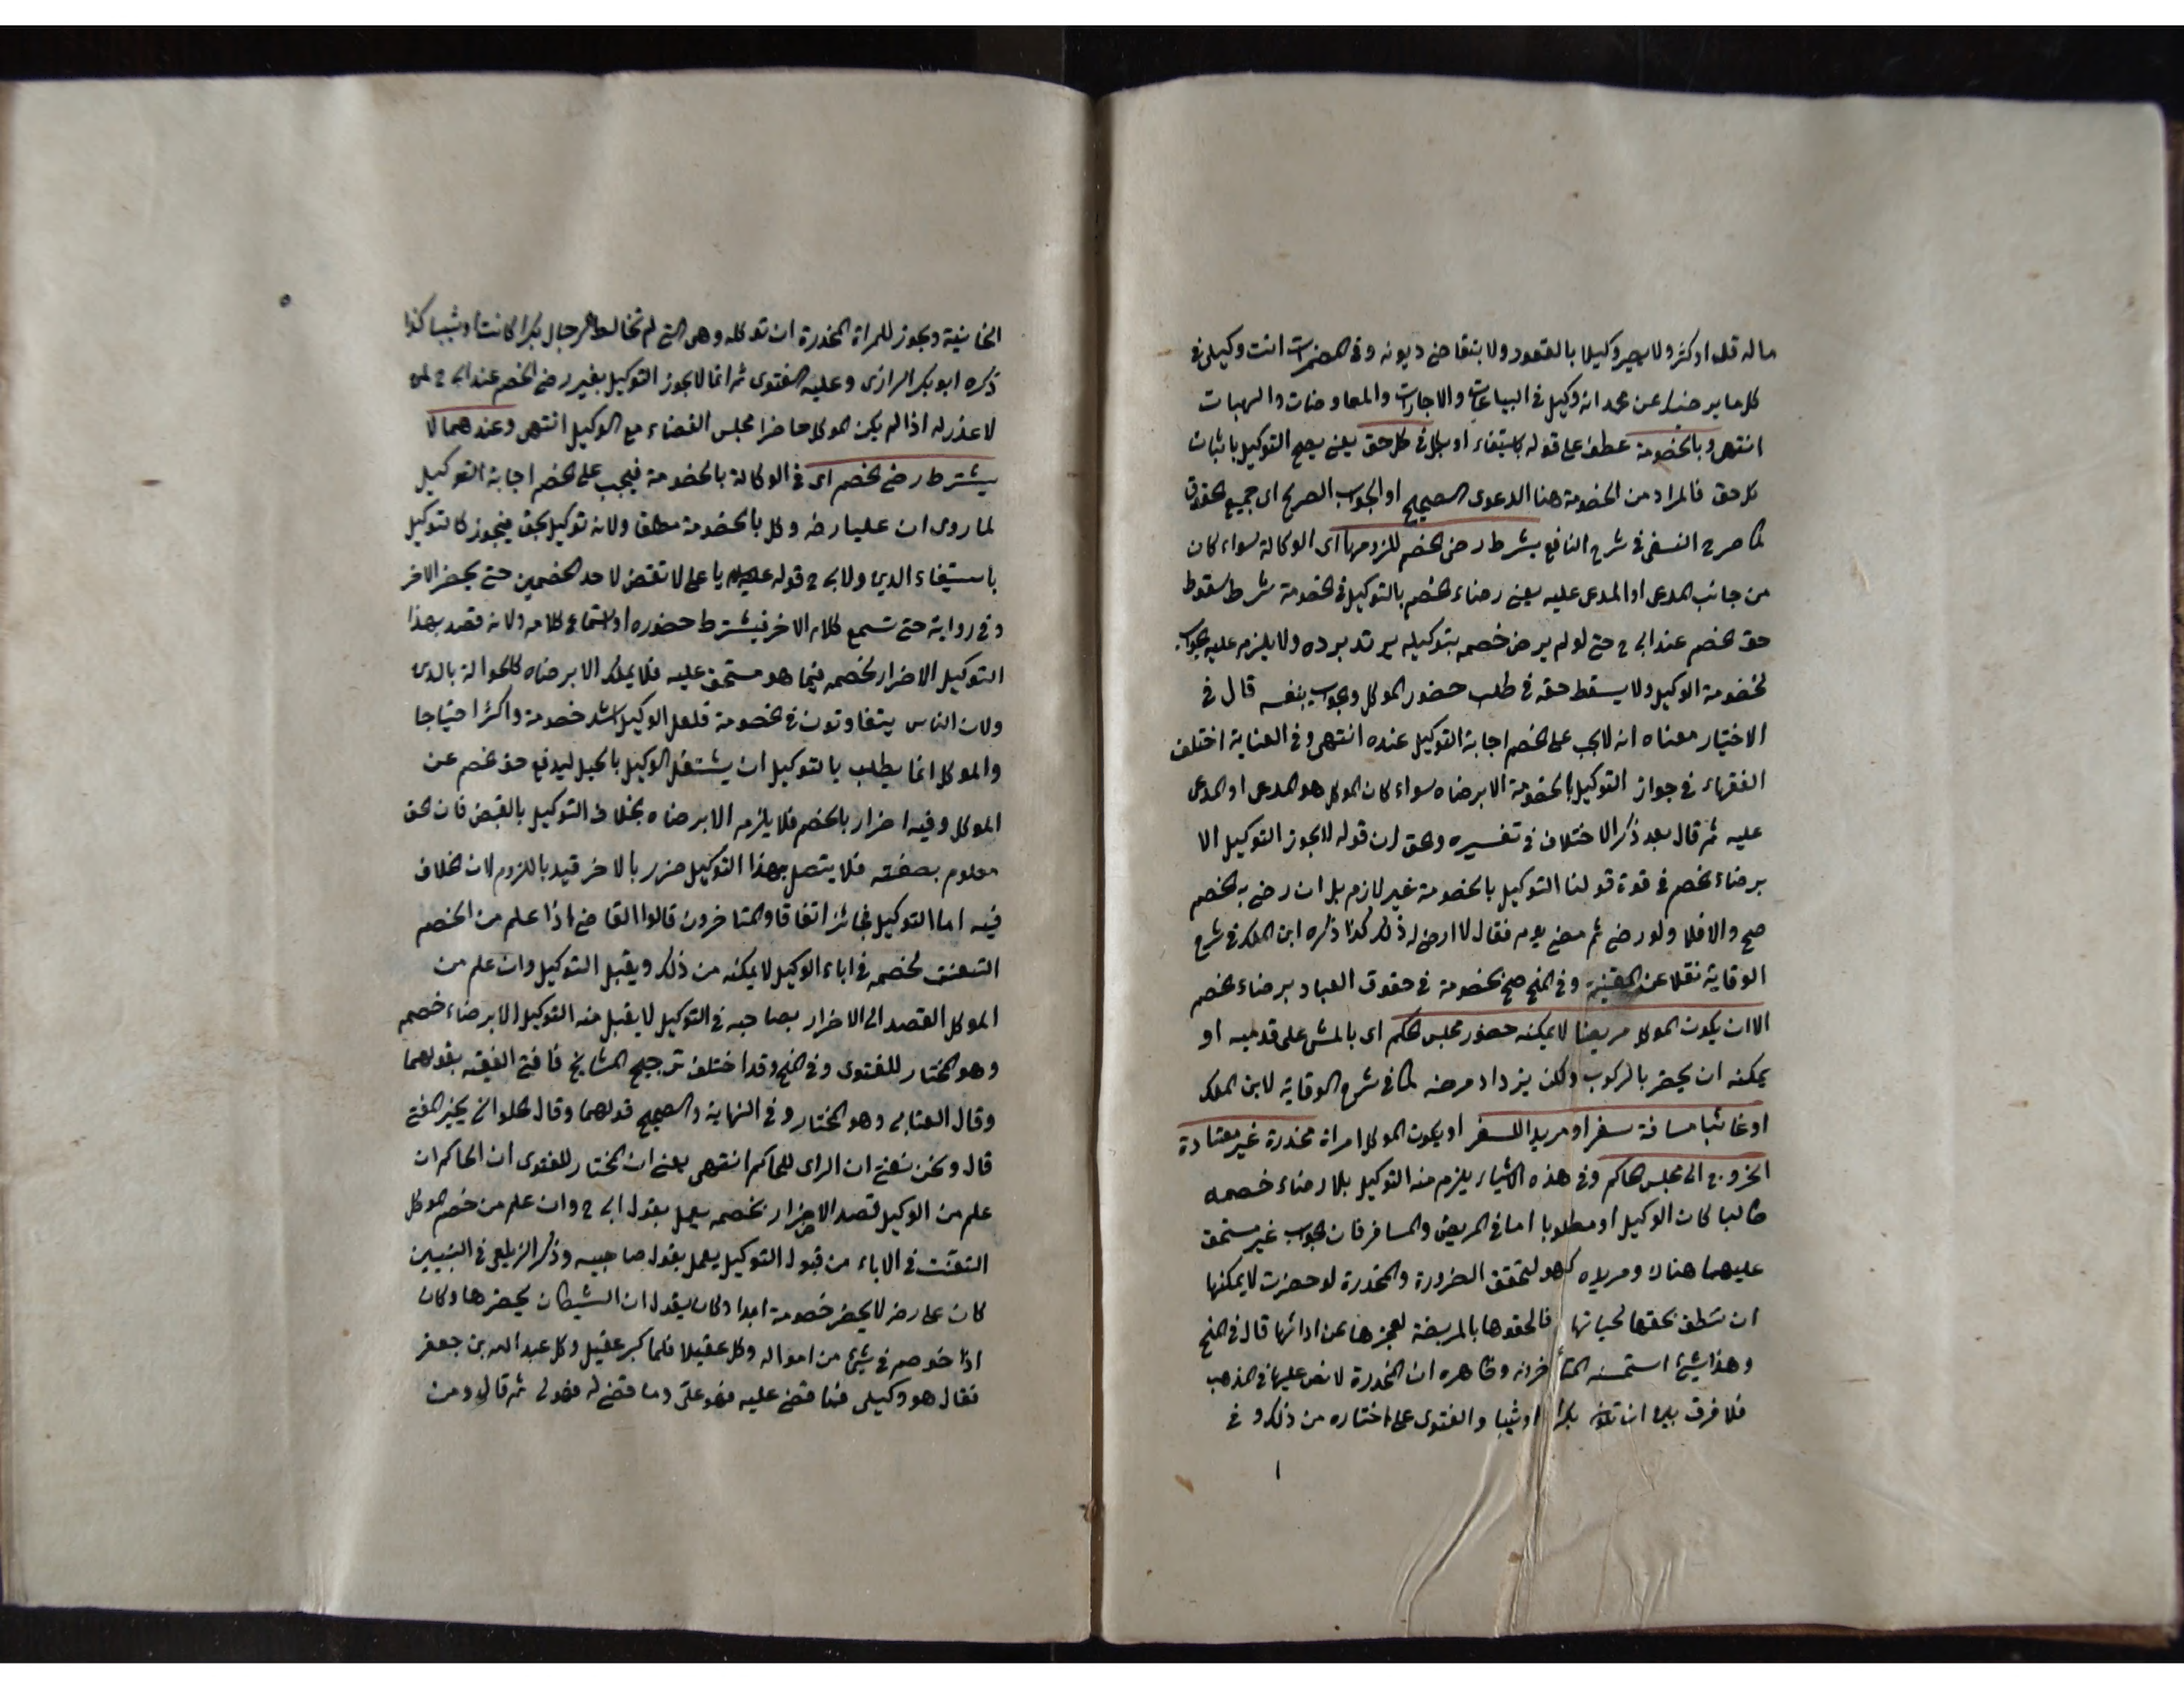 ماله قل او كثر ولا يصير وكيلا بالعقود ولا بتقاضى ديونه وفى المضمرات انت وكيلى فى
كل ما يرضيك عن محمد انه وكيل فى البياعات والاجارات والمعاوضات والهبات
انتهى وبالخصومة عطف على قوله باستيفاء او بكل فى كل حق يعنى يصح التوكيل باثبات
كل حق فالمراد من الخصومة هنا الدعوى الصحيح او الجواب الصريح اى جميع الحقوق
كما صرح النسفى فى شرح النافع بشرط رضى الخصم للزومها اى الوكالة سواء كان
من جانب المدعى او المدعى عليه يعنى رضاء الخصم بالتوكيل فى الخصومة شرط لسقوط
حق الخصم عند ابى ح حتى لو لم يرض خصمه بتوكيله يرتد برده ولا يلزم عليه الجواب
لخصومة الوكيل ولا يسقط حقه فى طلب حضور الموكل والجواب بنفسه قال فى
الاختيار معناه انه لا يجب على الخصم اجابة التوكيل عنده انتهى وفى العناية اختلف
الفقهاء فى جواز التوكيل بالخصومة الا برضاه سواء كان الموكل هو المدعى او المدعى
عليه ثم قال بعد ذكر الاختلاف فى تفسيره والحق ان قوله لا يجوز التوكيل الا
برضاء الخصم فى قوة قولنا التوكيل بالخصومة غير لازم بل ان رضى به الخصم
صح والا فلا ولو رضى ثم مضى يوم فقال لا ارضى له ذلك كذا ذكره ابن الملك فى شرح
الوقاية نقلا عن القنية وفى المنح صح الخصومة فى حقوق العباد برضاء الخصم
الا ان يكون الموكل مريضا لا يمكنه حضور مجلس الحكم اى بالمشى على قدميه او
يمكنه ان يحضر بالركوب ولكن يزداد مرضه كما فى شرح الوقاية لابن الملك
او غائبا مسافة سفر او مريدا للسفر او يكون الموكل امراة مخدرة غير معتادة
الخروج الى مجلس الحاكم وفى هذه الاشياء يلزم منه التوكيل بلا رضاء خصمه
طالبا كان الوكيل او مطلوبا اما فى المريض والمسافر فان الجواب غير مستحق
عليهما هناك ومريده كهو لتحقق الضرورة والمخدرة لو حضرت لا يمكنها
ان تنطق بحقها لحيائها فالحقوها بالمريضة لعجزها عن ادائها قال فى المنح
وهذا شئ استحسنه المتأخرون وظاهره ان المخدرة لا نص عليها فى المذهب
فلا فرق بين ان تكون بكرا او ثيبا والفتوى على اختاره من ذلك وفى
الخانية ويجوز للمراة المخدرة ان توكل وهى التى لم تخالط الرجال بكرا كانت او ثيبا كذا
ذكره ابو بكر الرازى وعليه الفتوى ثم انما لا يجوز التوكيل بغير رضى الخصم عند ابى ح لمن
لا عذر له اذا لم يكن الموكل حاضرا مجلس القضاء مع الوكيل انتهى وعندهما لا
يشترط رضى الخصم اى فى الوكالة بالخصومة فيجب على الخصم اجابة التوكيل
لما روى ان عليا رضه وكل بالخصومة مطلقا ولانه توكيل بحق فيجوز كالتوكيل
باستيفاء الدين ولابى ح قوله عليه السلام يا على لا تقض لاحد الخصمين حتى يحضر الاخر
وفى رواية حتى تسمع كلام الاخر فيشترط حضوره او استماع كلامه ولانه قصد بهذا
التوكيل الاضرار لخصمه فيما هو مستحق عليه فلا يملك الا برضاه كالحوالة بالدين
ولان الناس يتفاوتون فى الخصومة فلعل الوكيل اشد خصومة واكثر احتياجا
والموكل انما يطلب بالتوكيل ان يشتغل الوكيل بالحيل ليدفع حق الخصم عن
الموكل وفيه اضرار بالخصم فلا يلزمه الا برضاه بخلاف التوكيل بالقبض فان الحق
معلوم بصفته فلا يتصل بهذا التوكيل ضرر بالاخر قيد باللزوم لان الخلاف
فيه اما التوكيل فجائز اتفاقا والمتاخرون قالوا القاضى اذا علم من الخصم
التعنت لخصمه فى اباء الوكيل لا يمكنه من ذلك ويقبل التوكيل وان علم من
الموكل القصد الى الاضرار بصاحبه فى التوكيل لا يقبل منه التوكيل الا برضاء خصمه
وهو المختار للفتوى وفى المنح وقد اختلف ترجيح المشايخ فافتى الفقيه بقولهما
وقال العتابى وهو المختار وفى النهاية والصحيح قولهما وقال الحلوانى يخير المفتى
قال ونحن نفتى ان الراى للحاكم انتهى يعنى ان المختار للفتوى ان الحاكم ان
علم من الوكيل قصد الاضرار بخصمه يعمل بقول ابى ح وان علم من خصم الموكل
التعنت فى الاباء من قبول التوكيل يعمل بقول صاحبيه وذكر الزيلعى فى التبيين
كان على رض لا يحضر خصومة ابدا وكان يقول ان الشيطان يحضرها وكان
اذا خوصم فى شئ من امواله وكل عقيلا فلما كبر عقيل وكل عبد الله بن جعفر
فقال هو وكيلى فما قضى عليه فهو على وما قضى له فهو لى ثم قال ومن